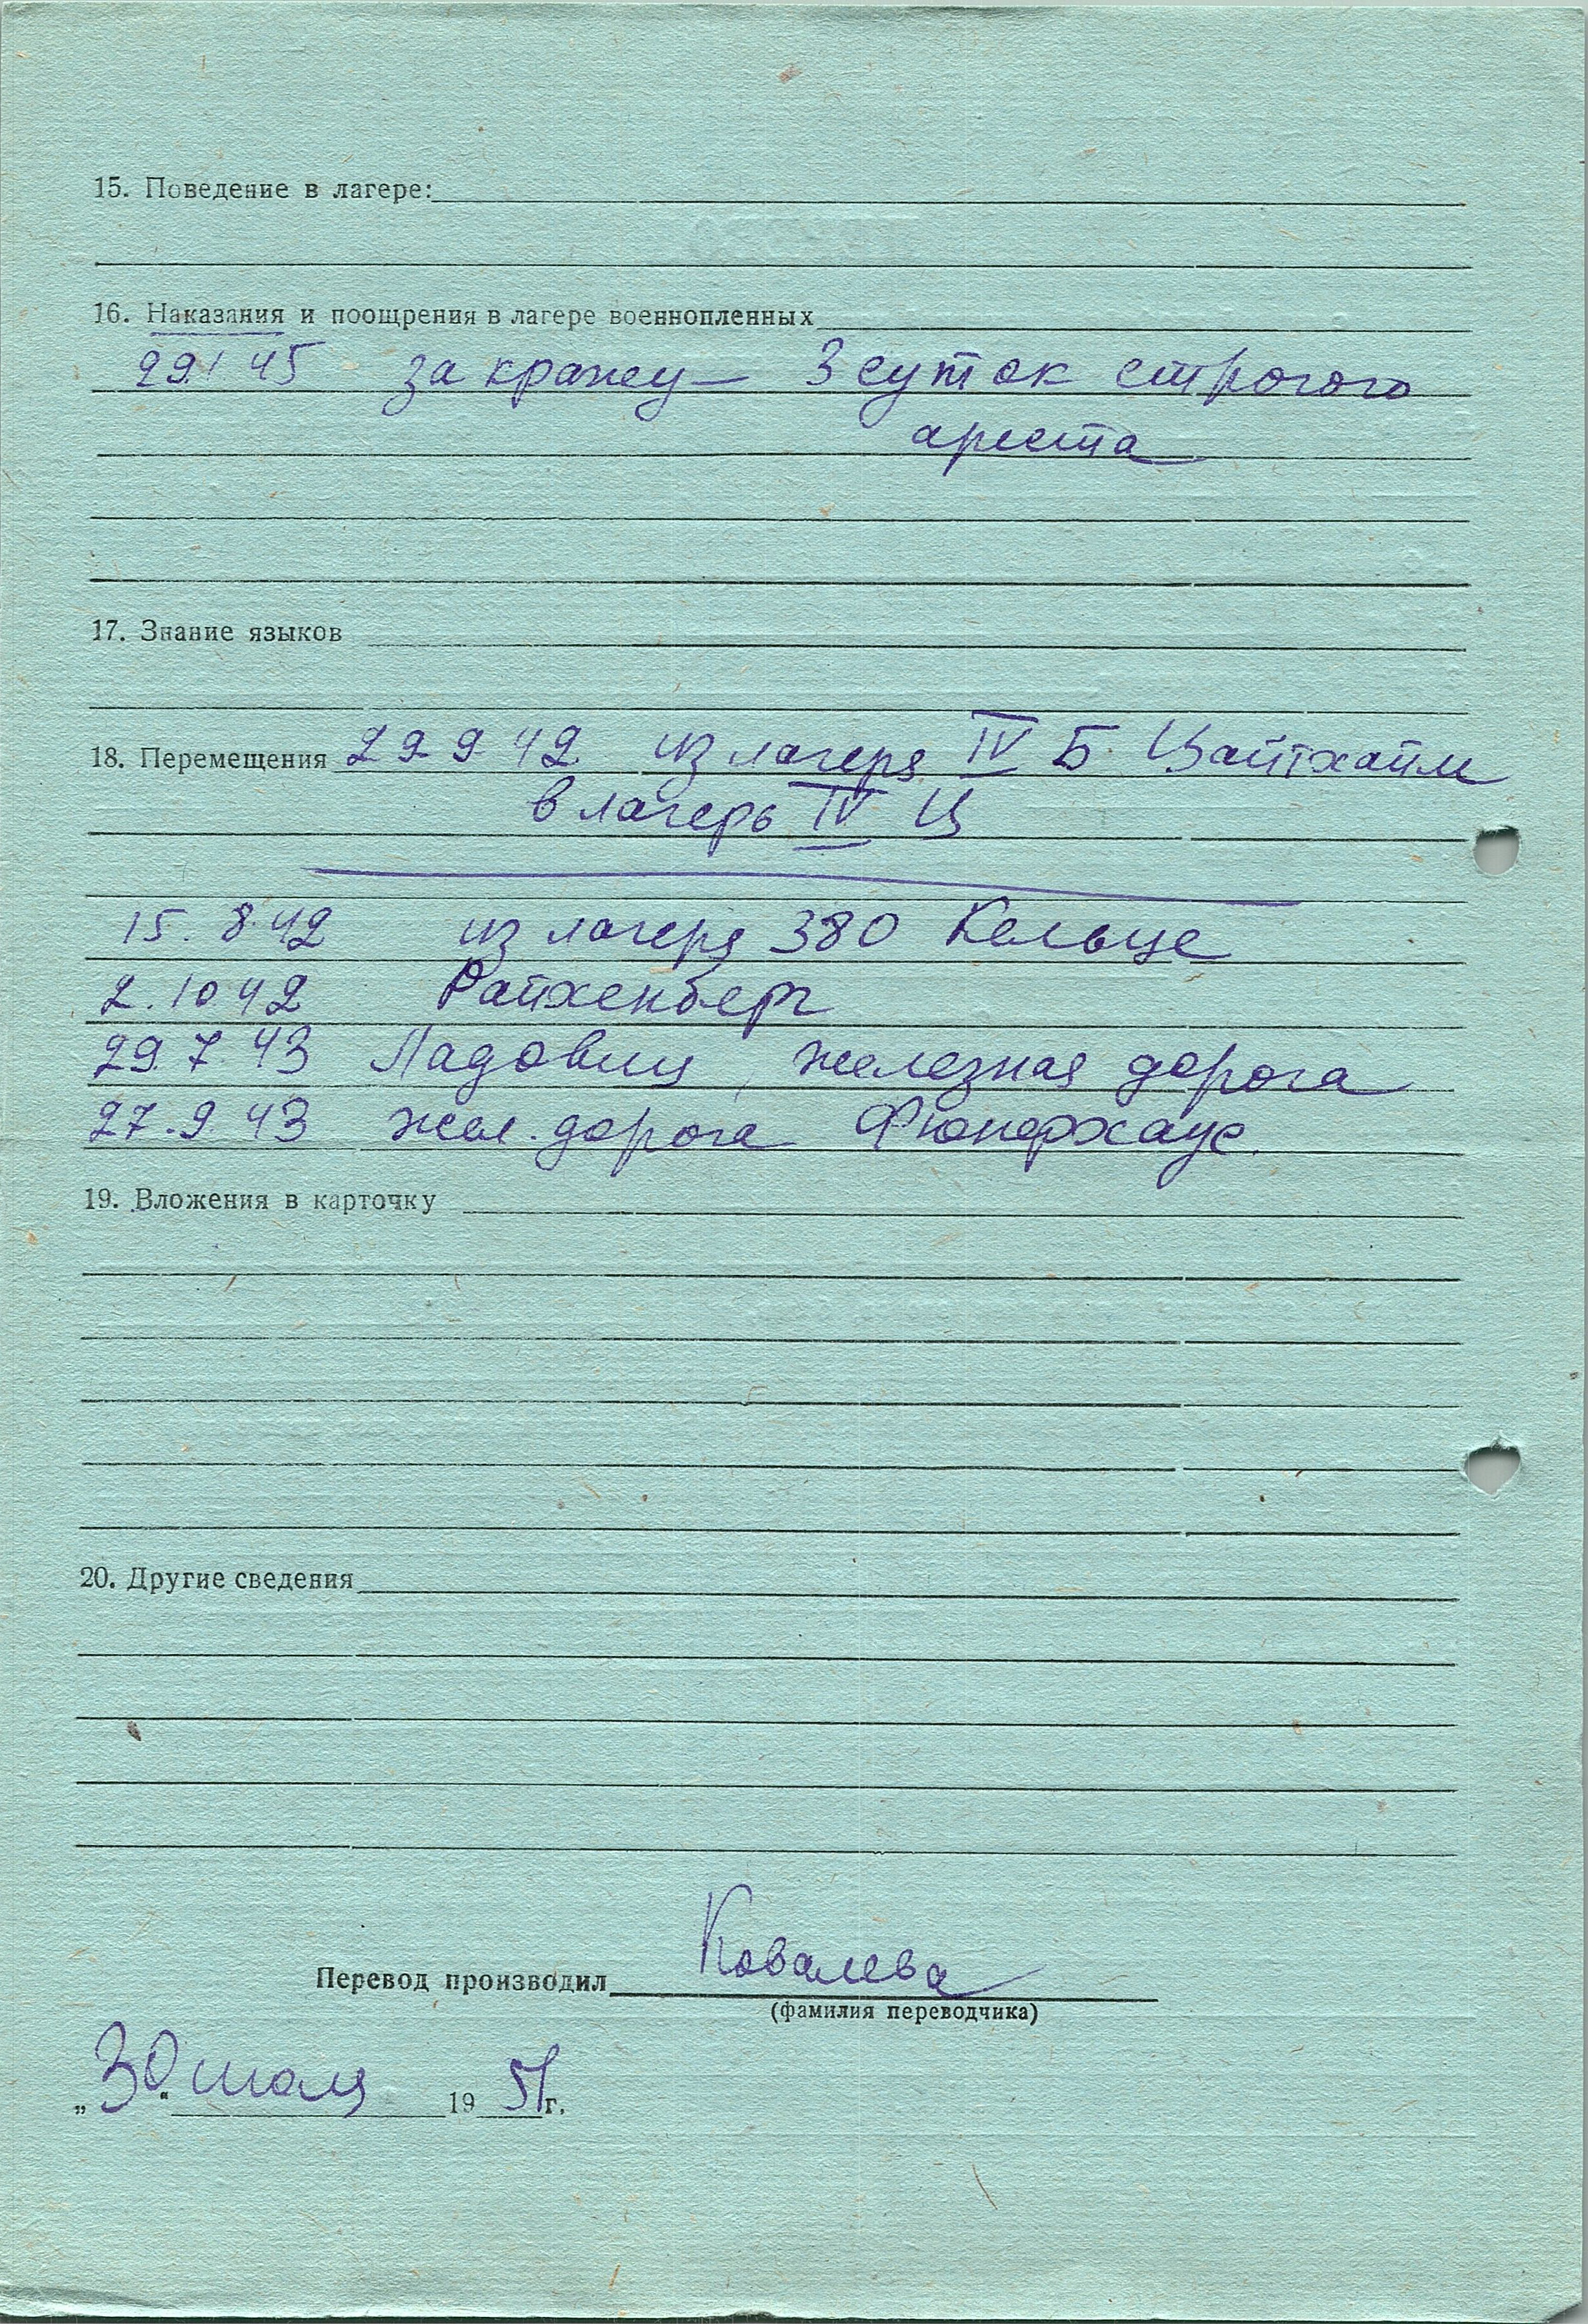 15. Поведение в лагере:
16. Наказания и поощрения в лагере военнопленных
29.1 45 за кражу — 3 суток строгого
ареста
17. Знание языков
18. Перемещения 29 9 42 из лагеря IV Б Цайтхайм
в лагерь IV Ц
15. 8.42 из лагеря 380 Кельце
2.10 42 Райхенберг
29.7.43 Ладовиц, железная дорога
27.9.43 жел. дорога Фюнфхаус.
19. Вложения в карточку
20. Другие сведения
Перевод производил Ковалева
(фамилия переводчика)
„30“ июля 1951г.